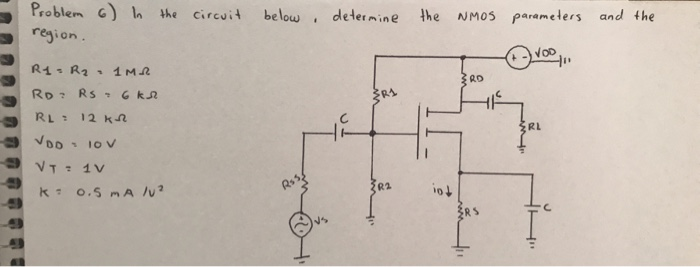 Problem 6) In the circuit below, determine the NMOS parameters and the
region.
R1 = R2 = 1 MΩ
RD = RS = 6 kΩ
RL = 12 kΩ
VDD = 10V
VT = 1V
K = 0.5 mA/V²
+ - VDD
RD
R1
C
C
RL
Rss
R2
iD↓
RS
C
Vs